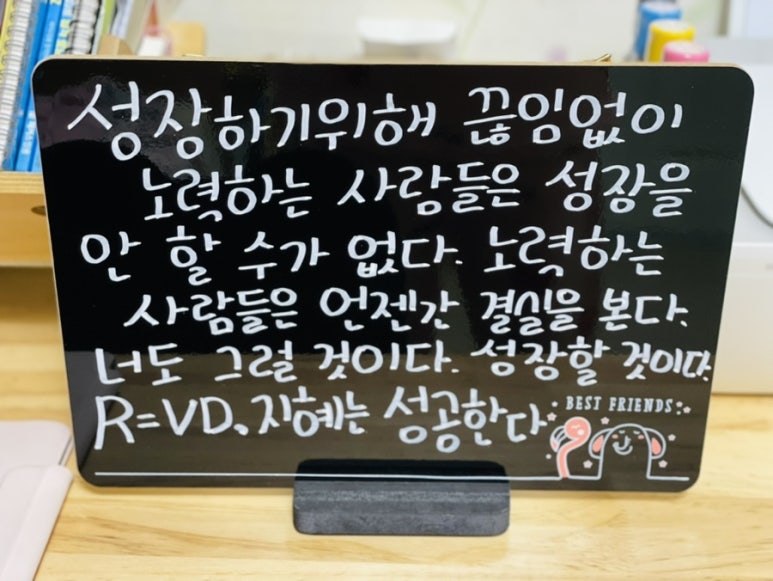 성장하기위해 끊임없이
노력하는 사람들은 성장을
안 할 수가 없다. 노력하는
사람들은 언젠간 결실을 본다.
너도 그럴 것이다. 성장할 것이다.
R=VD、지혜는 성공한다
BEST FRIENDS